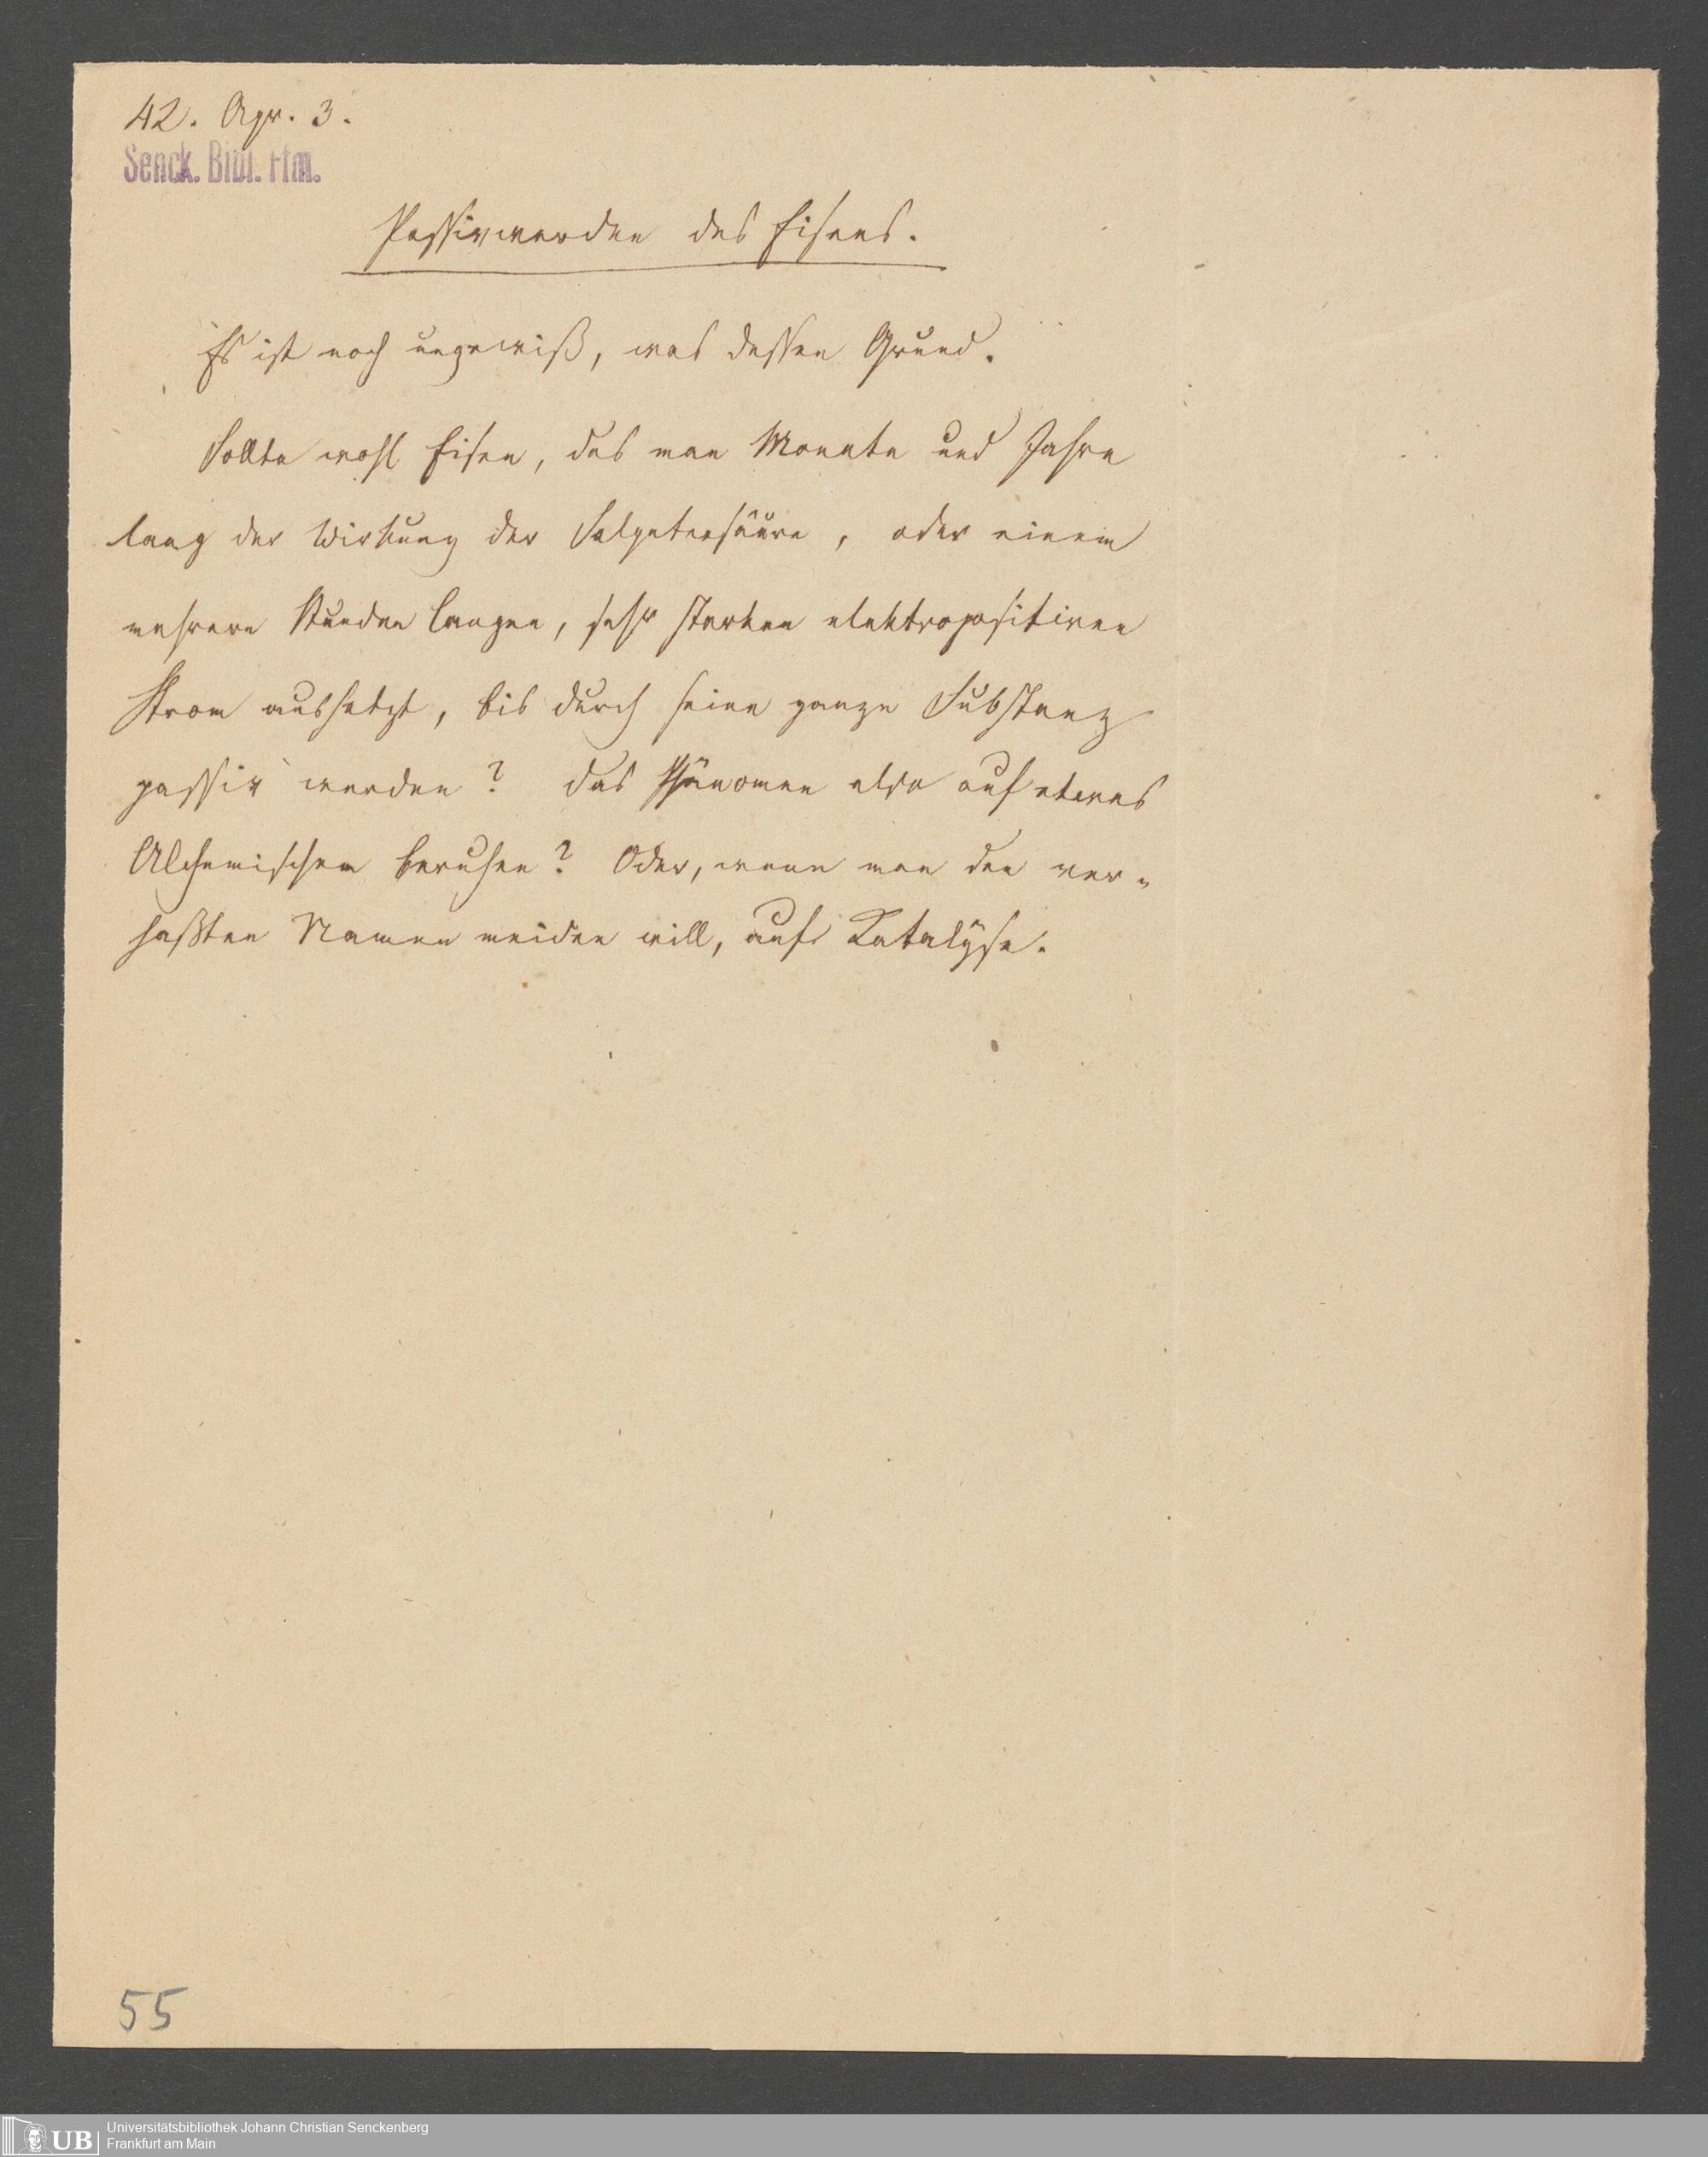 42. Apr. 3.
Senck. Bibl. Ffm.
Passivwerden des Eisens.
Es ist noch ungewiß, was dessen Grund.
Sollte wohl Eisen, das man Monate und Jahre
lang der Wirkung der Salpetersäure, oder einem
mehrere Stunden langen, sehr starken elektropositiven
Strom aussetzt, bis durch seine ganze Substanz
passiv werden? das Phänomen also auf etwas
Alchemischem beruhen? Oder, wenn man den ver-
haßten Namen meiden will, auf Katalÿse.
55
UB
Universitätsbibliothek Johann Christian Senckenberg
Frankfurt am Main